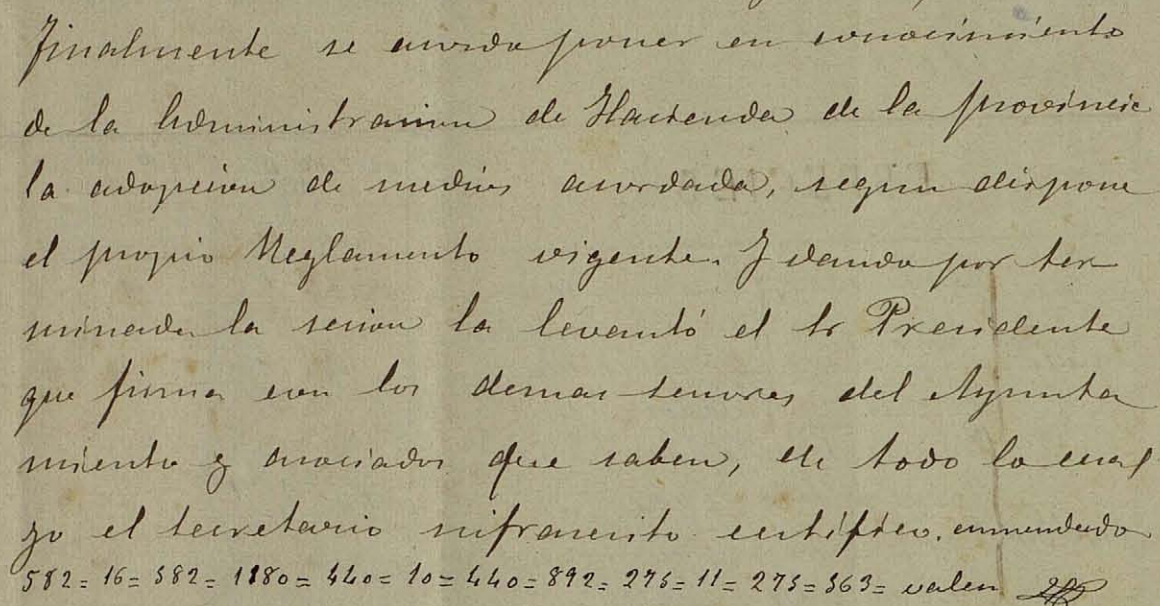 Finalmente se acorda poner en conocimiento
de la Administracion de Hacienda de la provincia
la adopcion de medios acordada, segun dispone
el propio Reglamento vigente. Y dando por ter
minada la sesion la levantó el Sr Presidente
que firma con los demas señores del Ayunta
miento y asociados que saben, de todo lo cual
yo el secretario infrascrito certifico. enmendado
582 = 16 = 582 = 1180 = 440 = 10 = 440 = 892 = 275 = 11 = 275 = 363 = valen